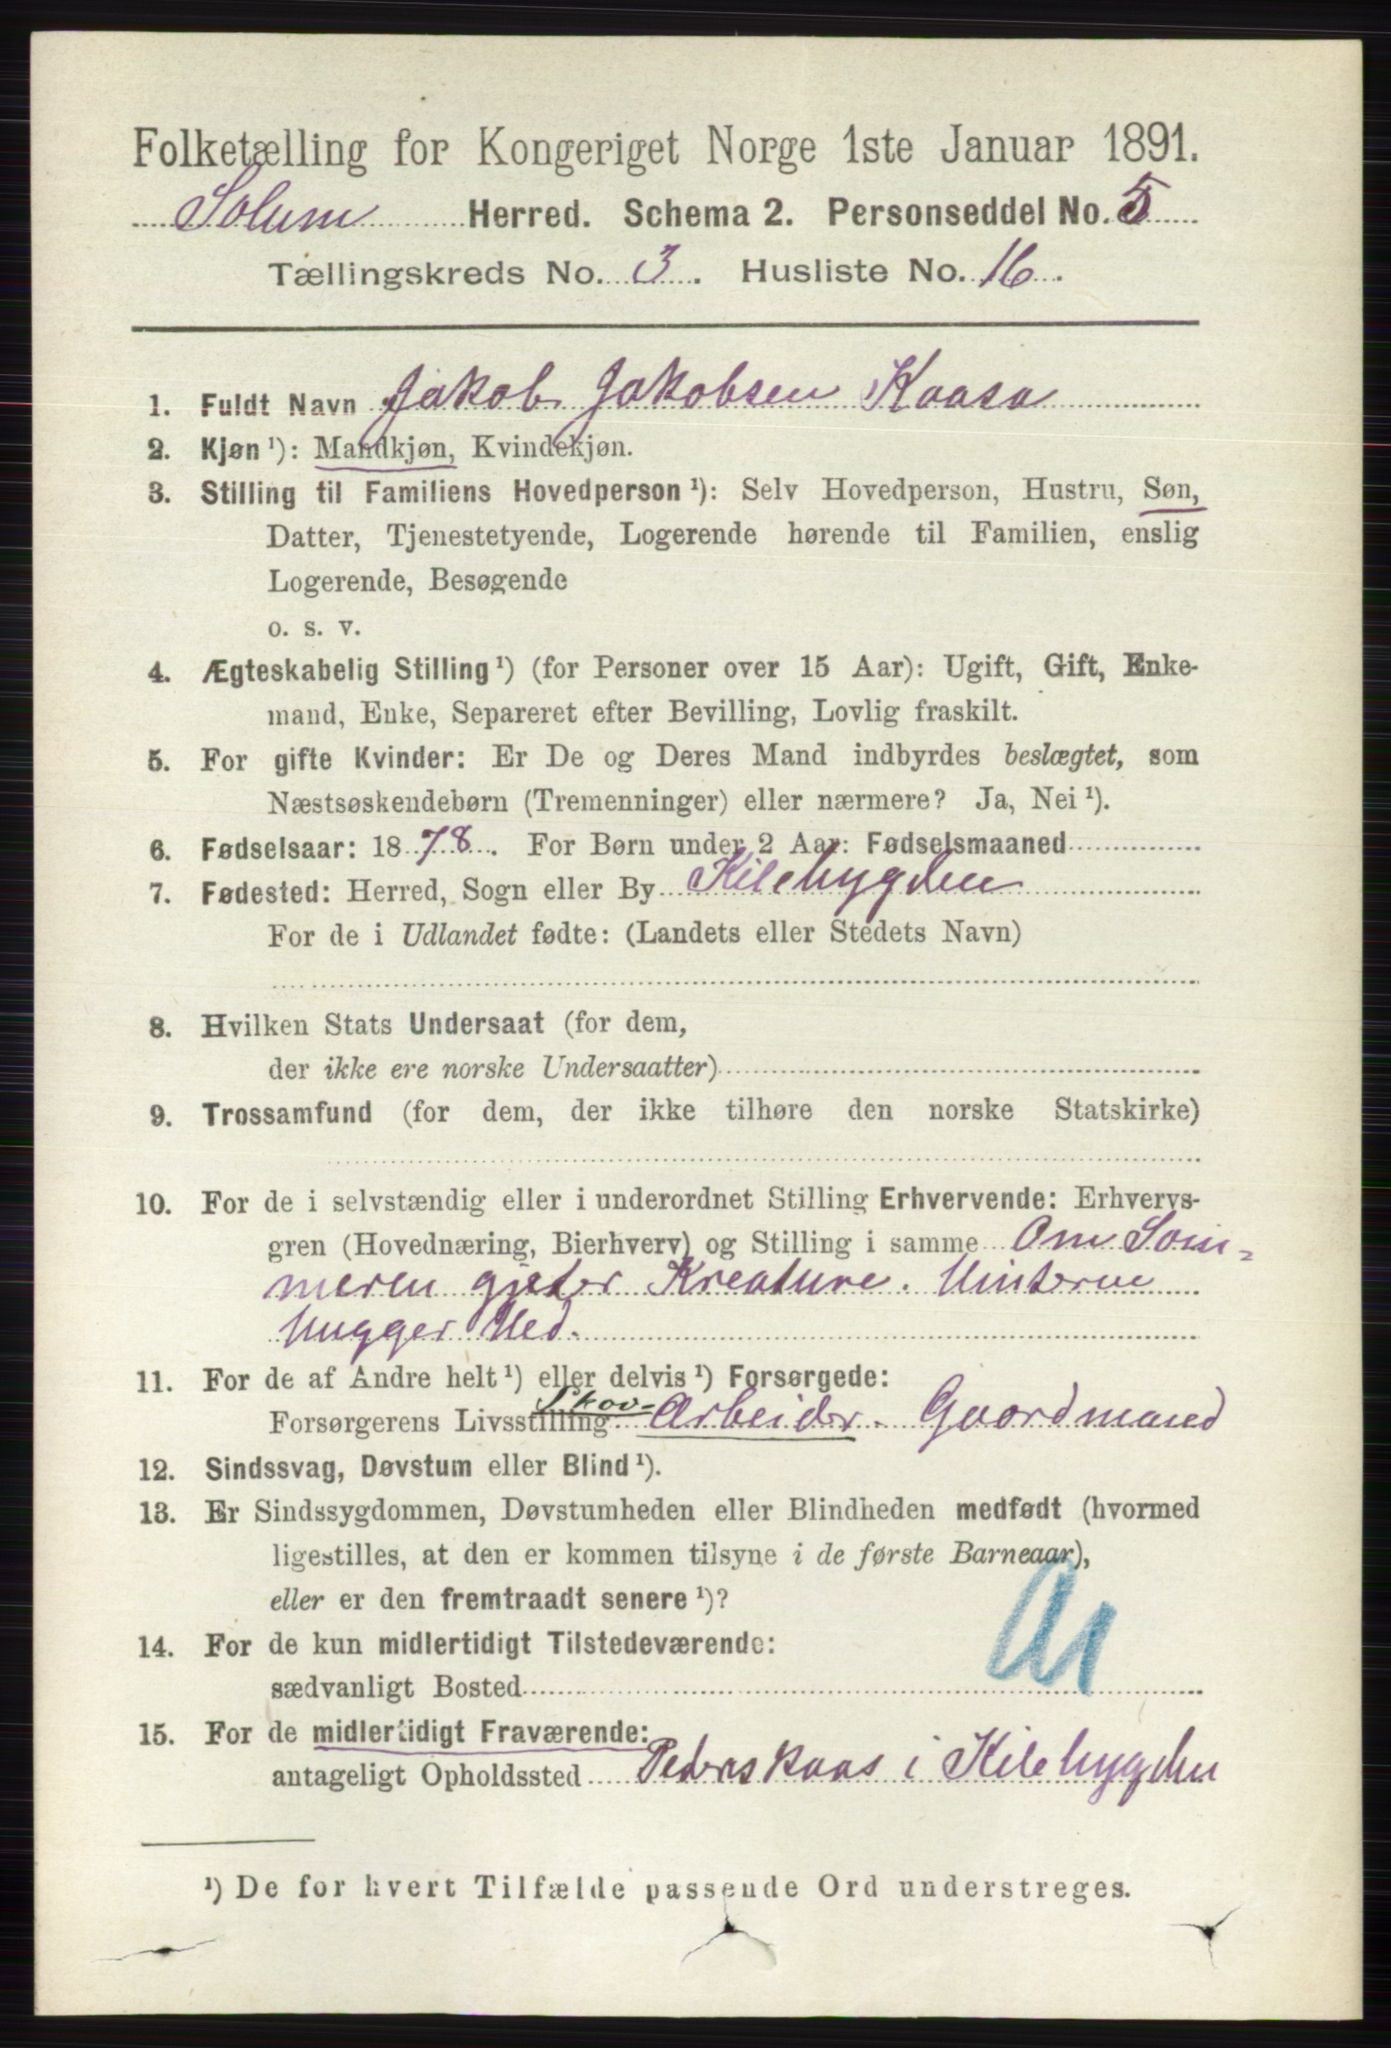 Folketælling for Kongeriget Norge 1ste Januar 1891.
Solum Herred. Schema 2. Personseddel No. 5
Tællingskreds No. 3. Husliste No. 16.
1. Fuldt Navn Jakob Jakobsen Kaasa
2. Kjøn ¹): Mandkjøn, Kvindekjøn.
3. Stilling til Familiens Hovedperson ¹): Selv Hovedperson, Hustru, Søn,
Datter, Tjenestetyende, Logerende hørende til Familien, enslig
Logerende, Besøgende
o. s. v.
4. Ægteskabelig Stilling ¹) (for Personer over 15 Aar): Ugift, Gift, Enke-
mand, Enke, Separeret efter Bevilling, Lovlig fraskilt.
5. For gifte Kvinder: Er De og Deres Mand indbyrdes beslægtet, som
Næstsøskendebørn (Tremenninger) eller nærmere? Ja, Nei ¹).
6. Fødselsaar: 1878. For Børn under 2 Aar: Fødselsmaaned
7. Fødested: Herred, Sogn eller By Kilebygden
For de i Udlandet fødte: (Landets eller Stedets Navn)
8. Hvilken Stats Undersaat (for dem,
der ikke ere norske Undersaatter)
9. Trossamfund (for dem, der ikke tilhøre den norske Statskirke)
10. For de i selvstændig eller i underordnet Stilling Erhvervende: Erhvervs-
gren (Hovednæring, Bierhverv) og Stilling i samme Om Som-
meren gjeter Kreature. Vinteren
hugger Ved.
11. For de af Andre helt ¹) eller delvis ¹) Forsørgede:
Forsørgerens Livsstilling Skov-Arbeider. Gaardmand
12. Sindssvag, Døvstum eller Blind ¹).
13. Er Sindssygdommen, Døvstumheden eller Blindheden medfødt (hvormed
ligestilles, at den er kommen tilsyne i de første Barneaar),
eller er den fremtraadt senere ¹)?
14. For de kun midlertidigt Tilstedeværende:
sædvanligt Bosted
15. For de midlertidigt Fraværende:
antageligt Opholdssted Pederskaas i Kilebygden
¹) De for hvert Tilfælde passende Ord understreges.